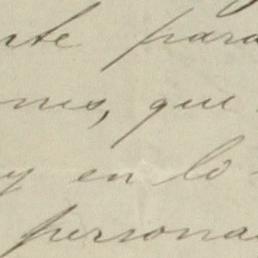 nte para
ones, que
y en lo
persona